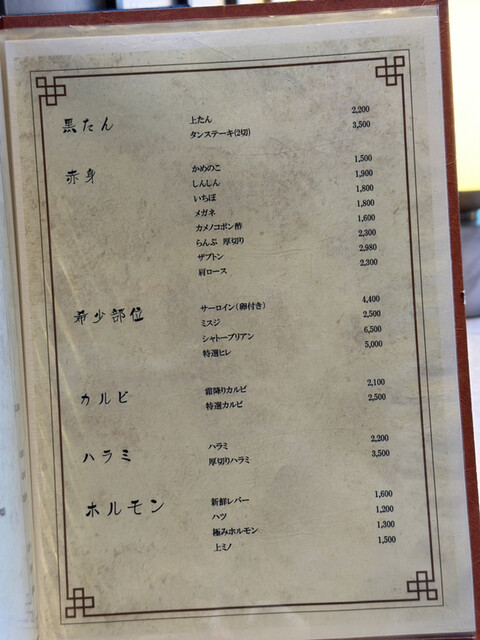 黒たん
上たん 2,200
タンステーキ(2切) 3,500
赤身
かめのこ 1,500
しんしん 1,900
いちぼ 1,800
メガネ 1,800
カメノコポン酢 1,600
らんぷ 厚切り 2,300
ザブトン 2,980
肩ロース 2,300
希少部位
サーロイン(卵付き) 4,400
ミスジ 2,500
シャトーブリアン 6,500
特選ヒレ 5,000
カルビ
霜降りカルビ 2,100
特選カルビ 2,500
ハラミ
ハラミ 2,200
厚切りハラミ 3,500
ホルモン
新鮮レバー 1,600
ハツ 1,200
極みホルモン 1,300
上ミノ 1,500